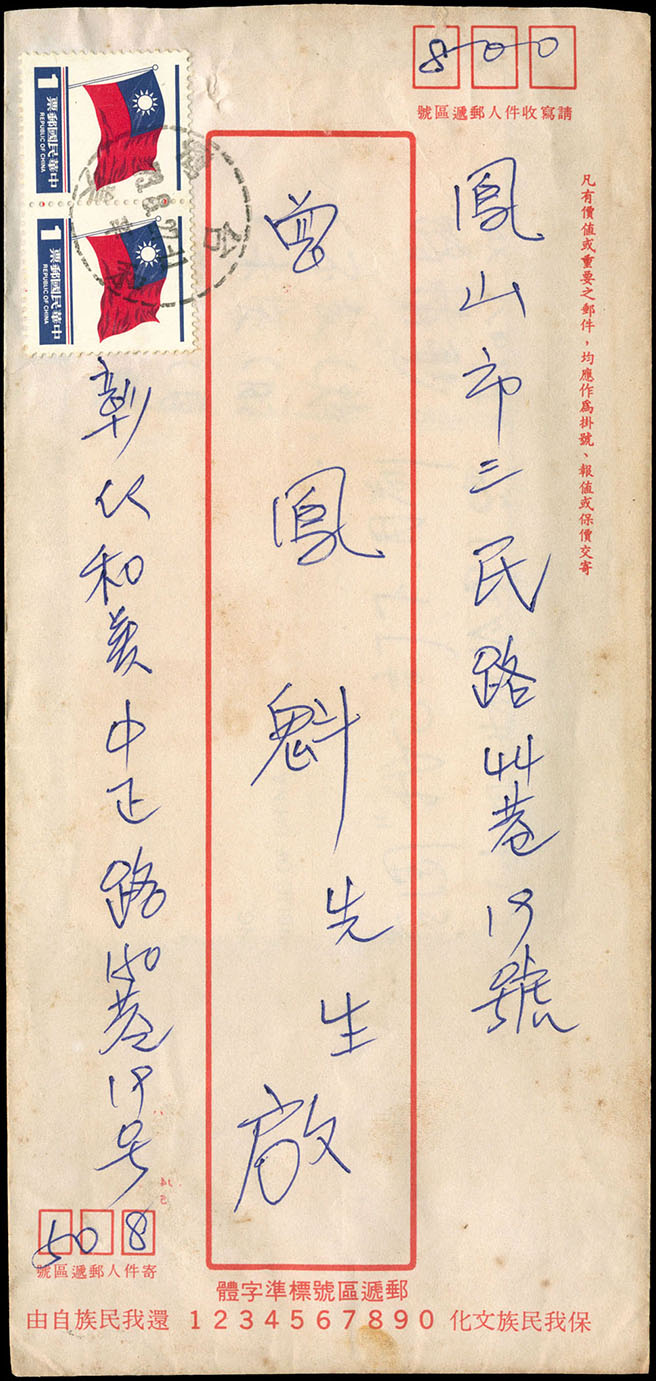 800
請寫收件人郵遞區號
凡有價值或重要之郵件，均應作為掛號、報值或保價交寄
鳳山市三民路44巷19號
曾鳳魁先生啟
1
中華民國郵票
REPUBLIC OF CHINA
1
中華民國郵票
REPUBLIC OF CHINA
彰化和美中正路150巷19号
508
寄件人郵遞區號
郵遞區號標準字體
1234567890
保我民族文化
還我民族自由